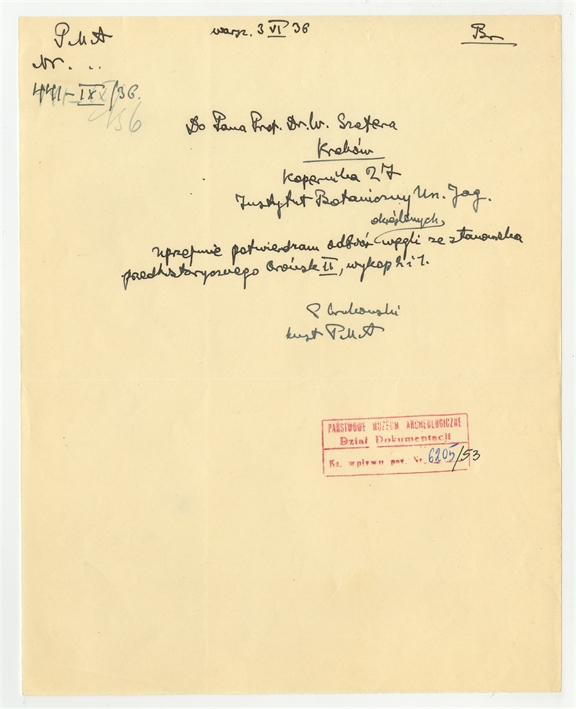 PMA
Warsz. 3 VI 36
Br
Nr. ..
441-IX/36.
Do Pana Prof. Dr. W. Szafera
Kraków
Kopernika 27
Instytut Botaniczny Un. Jag.
określonych
Uprzejmie potwierdzam odbiór węgli ze stanowiska
przedhistorycznego Orońsk II, wykop
kust PMA
PAŃSTWOWE MUZEUM ARCHEOLOGICZNE
Dział Dokumentacji
Ks. wpływu poz. Nr. 6205/53